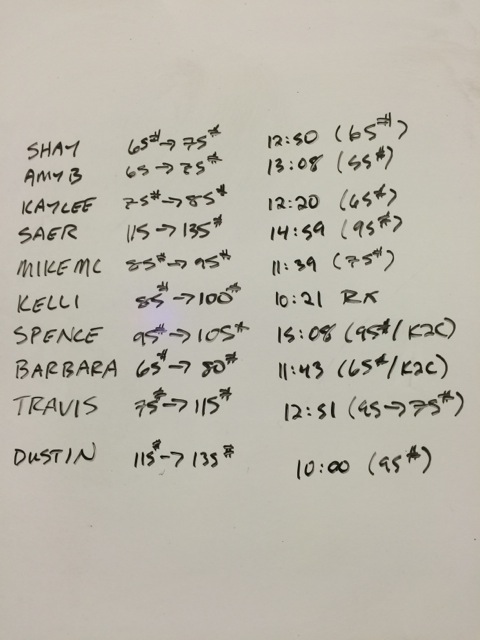 SHAY 65# → 75# 12:50 (65#)
AMY B 65 → 75# 13:08 (55#)
KAYLEE 75# → 85# 12:20 (65#)
SAER 115 → 135# 14:59 (95#)
MIKE MC 85# → 95# 11:39 (75#)
KELLI 85# → 100# 10:21 RX
SPENCE 95# → 105# 15:08 (95#/K2C)
BARBARA 65# → 80# 11:43 (65#/K2C)
TRAVIS 75# → 115# 12:51 (95→75#)
DUSTIN 115# → 135# 10:00 (95#)